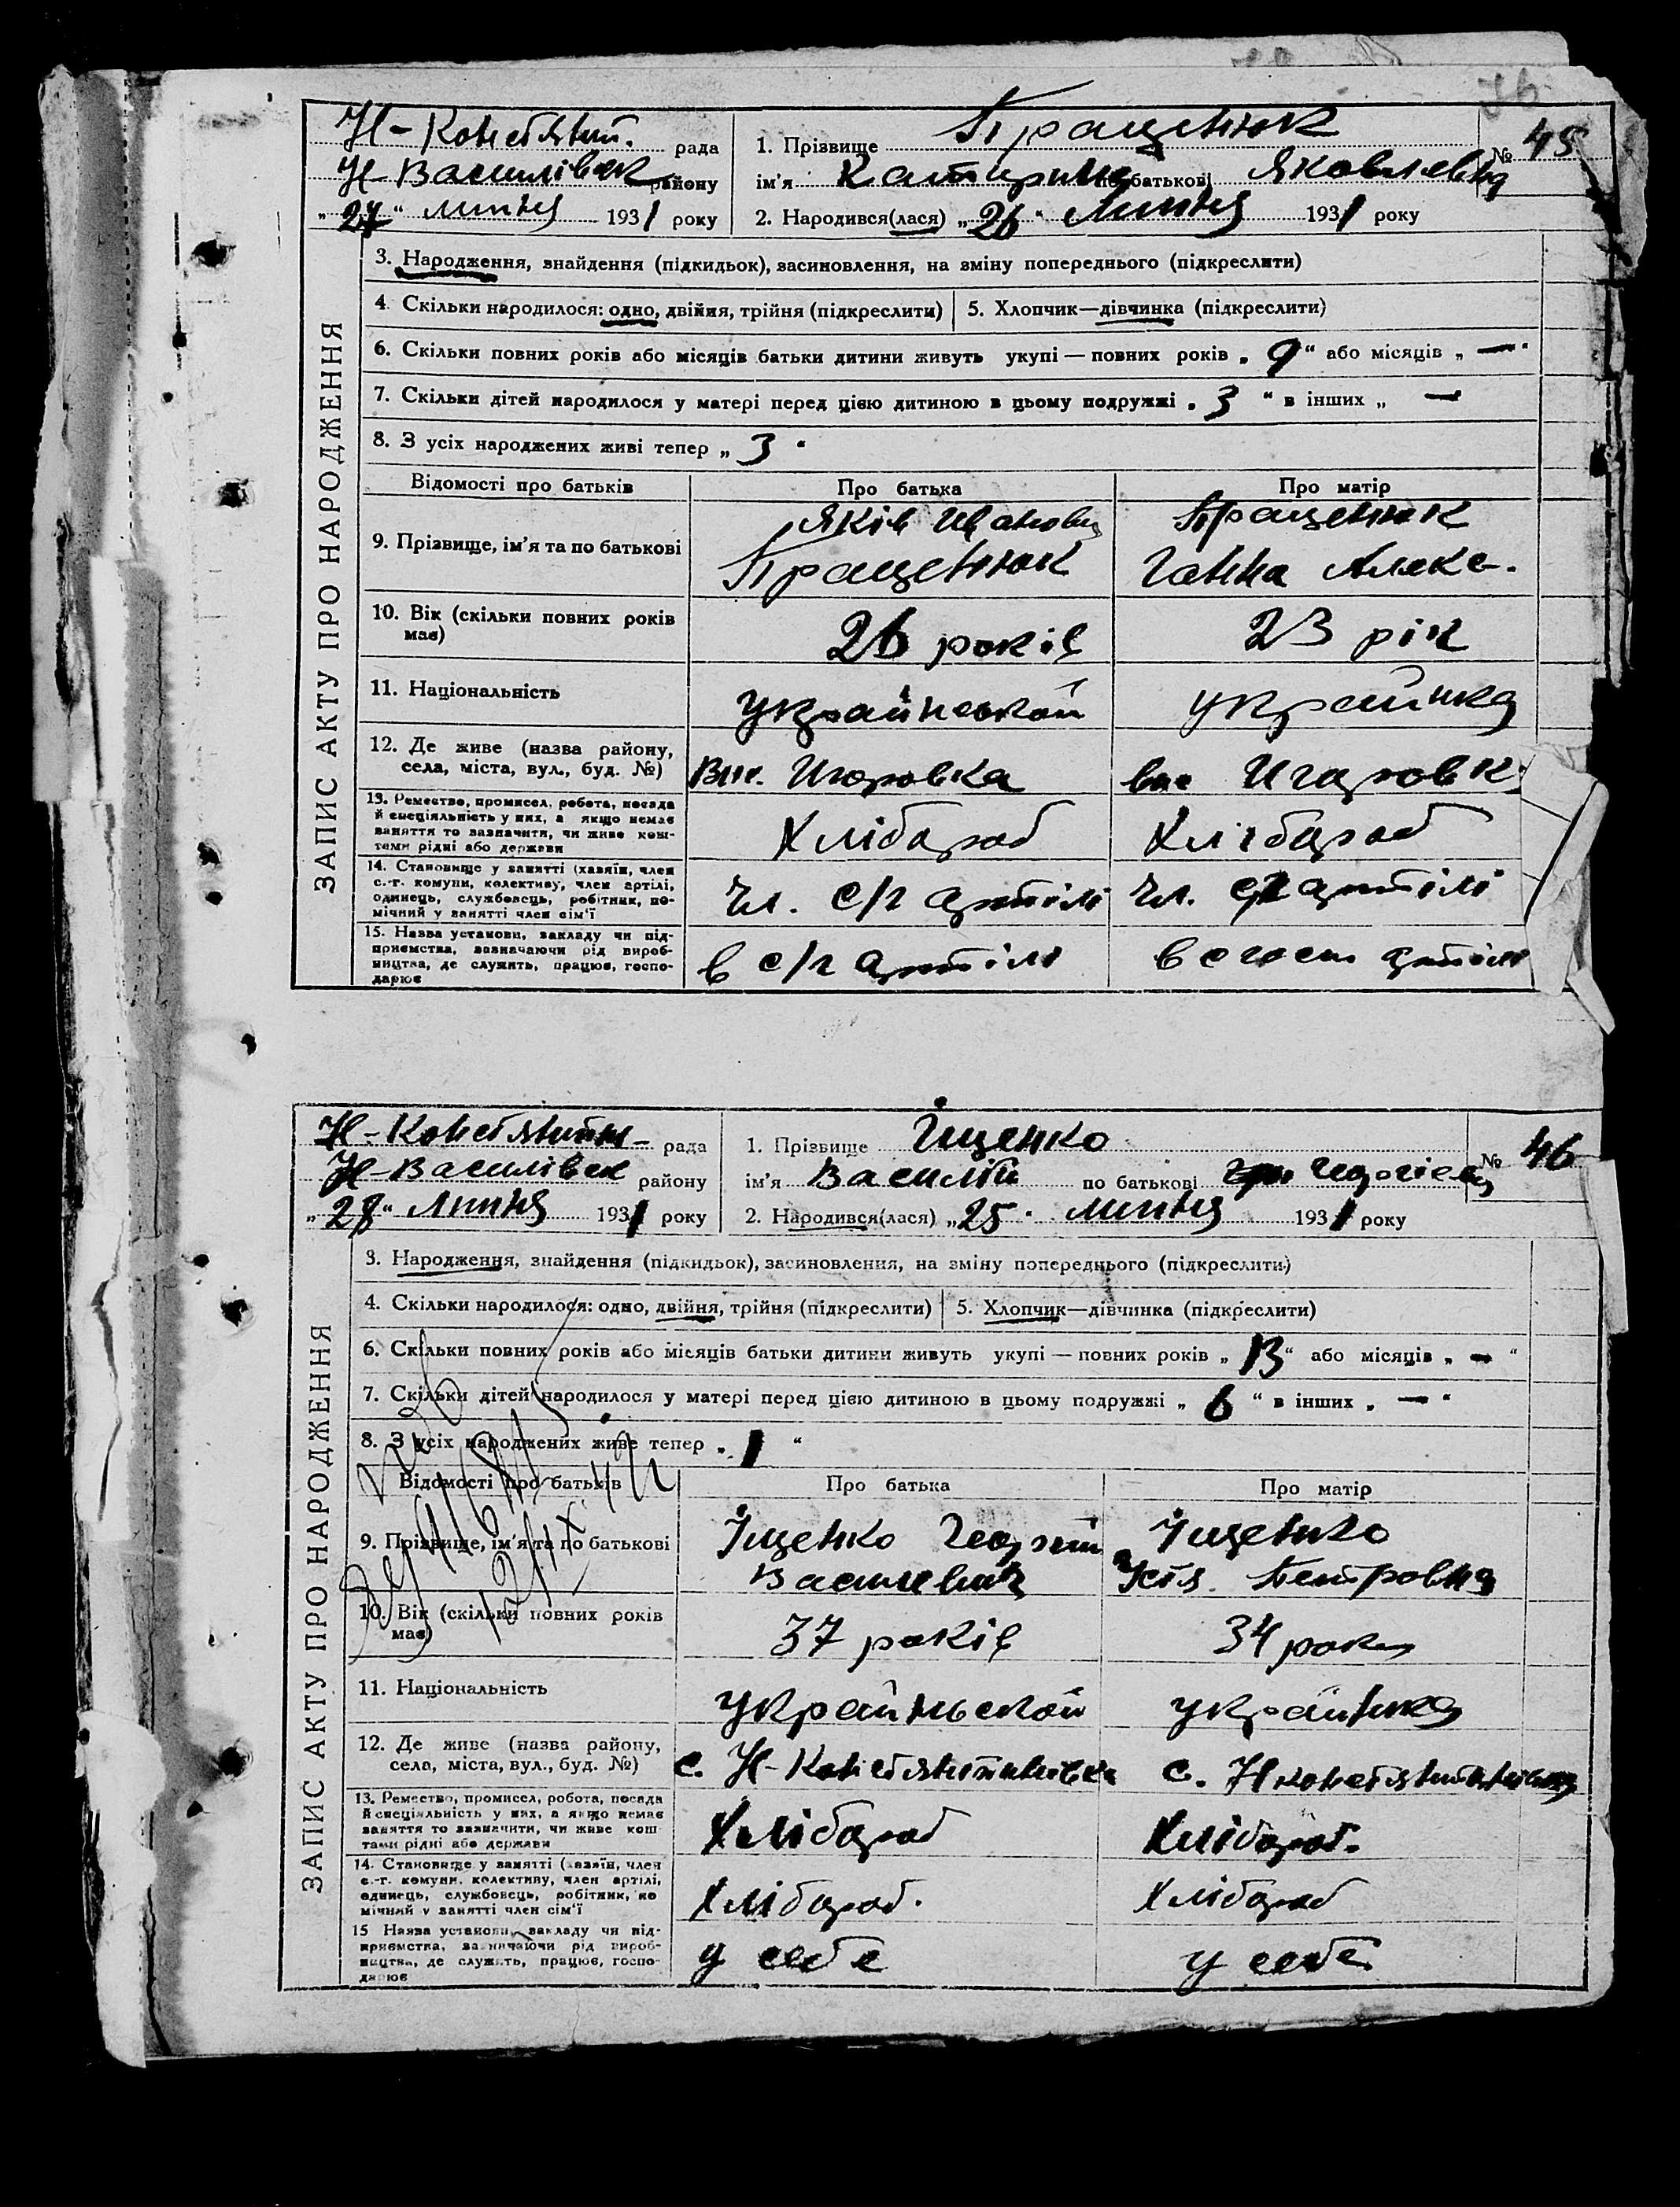 Н-Констянтин. рада
Н-Василівськ району
„27“ липня 1931 року
1. Прізвище Пращенюк
ім’я Катирина по батькові Яковлевна
2. Народився(лася) „26“ Липня 1931 року
№ 45
ЗАПИС АКТУ ПРО НАРОДЖЕННЯ
3. Народження, знайдення (підкидьок), засиновлення, на зміну попереднього (підкреслити)
4. Скільки народилося: одно, двійня, трійня (підкреслити) 5. Хлопчик—дівчинка (підкреслити)
6. Скільки повних років або місяців батьки дитини живуть укупі — повних років „ 9 “ або місяців „ — “
7. Скільки дітей народилося у матері перед цією дитиною в цьому подружжі „ 3 “ в інших „ —
8. З усіх народжених живі тепер „ 3 “
Відомості про батьків Про батька Про матір
9. Прізвище, ім’я та по батькові
Яків Іванович
Пращенюк
Пращенюк
Ганна Алекс.
10. Вік (скільки повних років
має)
26 років
23 рік
11. Національність
українськой
українка
12. Де живе (назва району,
села, міста, вул., буд. №)
13. Ремество, промисел, робота, посада
й спеціяльність у них, а якщо немає
заняття то зазначити, чи живе кош-
тами рідні або держави
Хлібороб
Хлібороб
14. Становище у занятті (хазяїн, член
с.-г. комуни, колективу, член артілі,
одинець, службовець, робітник, по-
мічний у занятті член сім’ї
Чл. с/г артілі
Чл. с/г артілі
15. Назва установи, закладу чи під-
приємства, зазначаючи рід вироб-
ництва, де служить, працює, госпо-
дарює
в с/г артілі
в артілі
Н-Констянтин- рада
Н-Василівськ району
„28“ Липня 1931 року
1. Прізвище Їщенко
ім’я Василій по батькові Георгієвич
2. Народився(лася) „25“ липня 1931 року
№ 46
ЗАПИС АКТУ ПРО НАРОДЖЕННЯ
3. Народження, знайдення (підкидьок), засиновлення, на зміну попереднього (підкреслити)
4. Скільки народилося: одно, двійня, трійня (підкреслити) 5. Хлопчик—дівчинка (підкреслити)
6. Скільки повних років або місяців батьки дитини живуть укупі — повних років „ 13 “ або місяців „ — “
7. Скільки дітей народилося у матері перед цією дитиною в цьому подружжі „ 6 “ в інших „ — “
8. З усіх народжених живе тепер „ 1 “
Відомості про батьків Про батька Про матір
9. Прізвище, ім’я та по батькові
Їщенко Георгій
Васильевич
Їщенко
Устя Петровна
10. Вік (скільки повних років
має)
37 років
34 роки
11. Національність
українськой
українка
12. Де живе (назва району,
села, міста, вул., буд. №)
с. Н-Констянтинівка
с. Н Констянтинівка
13. Ремество, промисел, робота, посада
й спеціяльність у них, а якщо немає
заняття то зазначити, чи живе кош-
тами рідні або держави
Хлібороб
Хлібороб.
14. Становище у занятті (хазяїн, член
с.-г. комуни, колективу, член артілі,
одинець, службовець, робітник, по
мічний у занятті член сім’ї
Хлібороб.
Хлібороб
15 Назва установи, закладу чи під-
приємства, зазначаючи рід вироб-
ництва, де служить, працює, госпо-
дарює
у себе
у себе